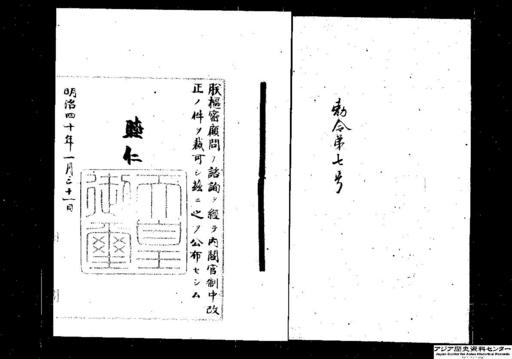 勅令第七号
朕枢密顧問ノ諮詢ヲ経テ内閣官制中改
正ノ件ヲ裁可シ茲ニ之ヲ公布セシム
睦仁
天皇御璽
明治四十年一月三十一日
アジア歴史資料センター
Japan Center for Asian Historical Records